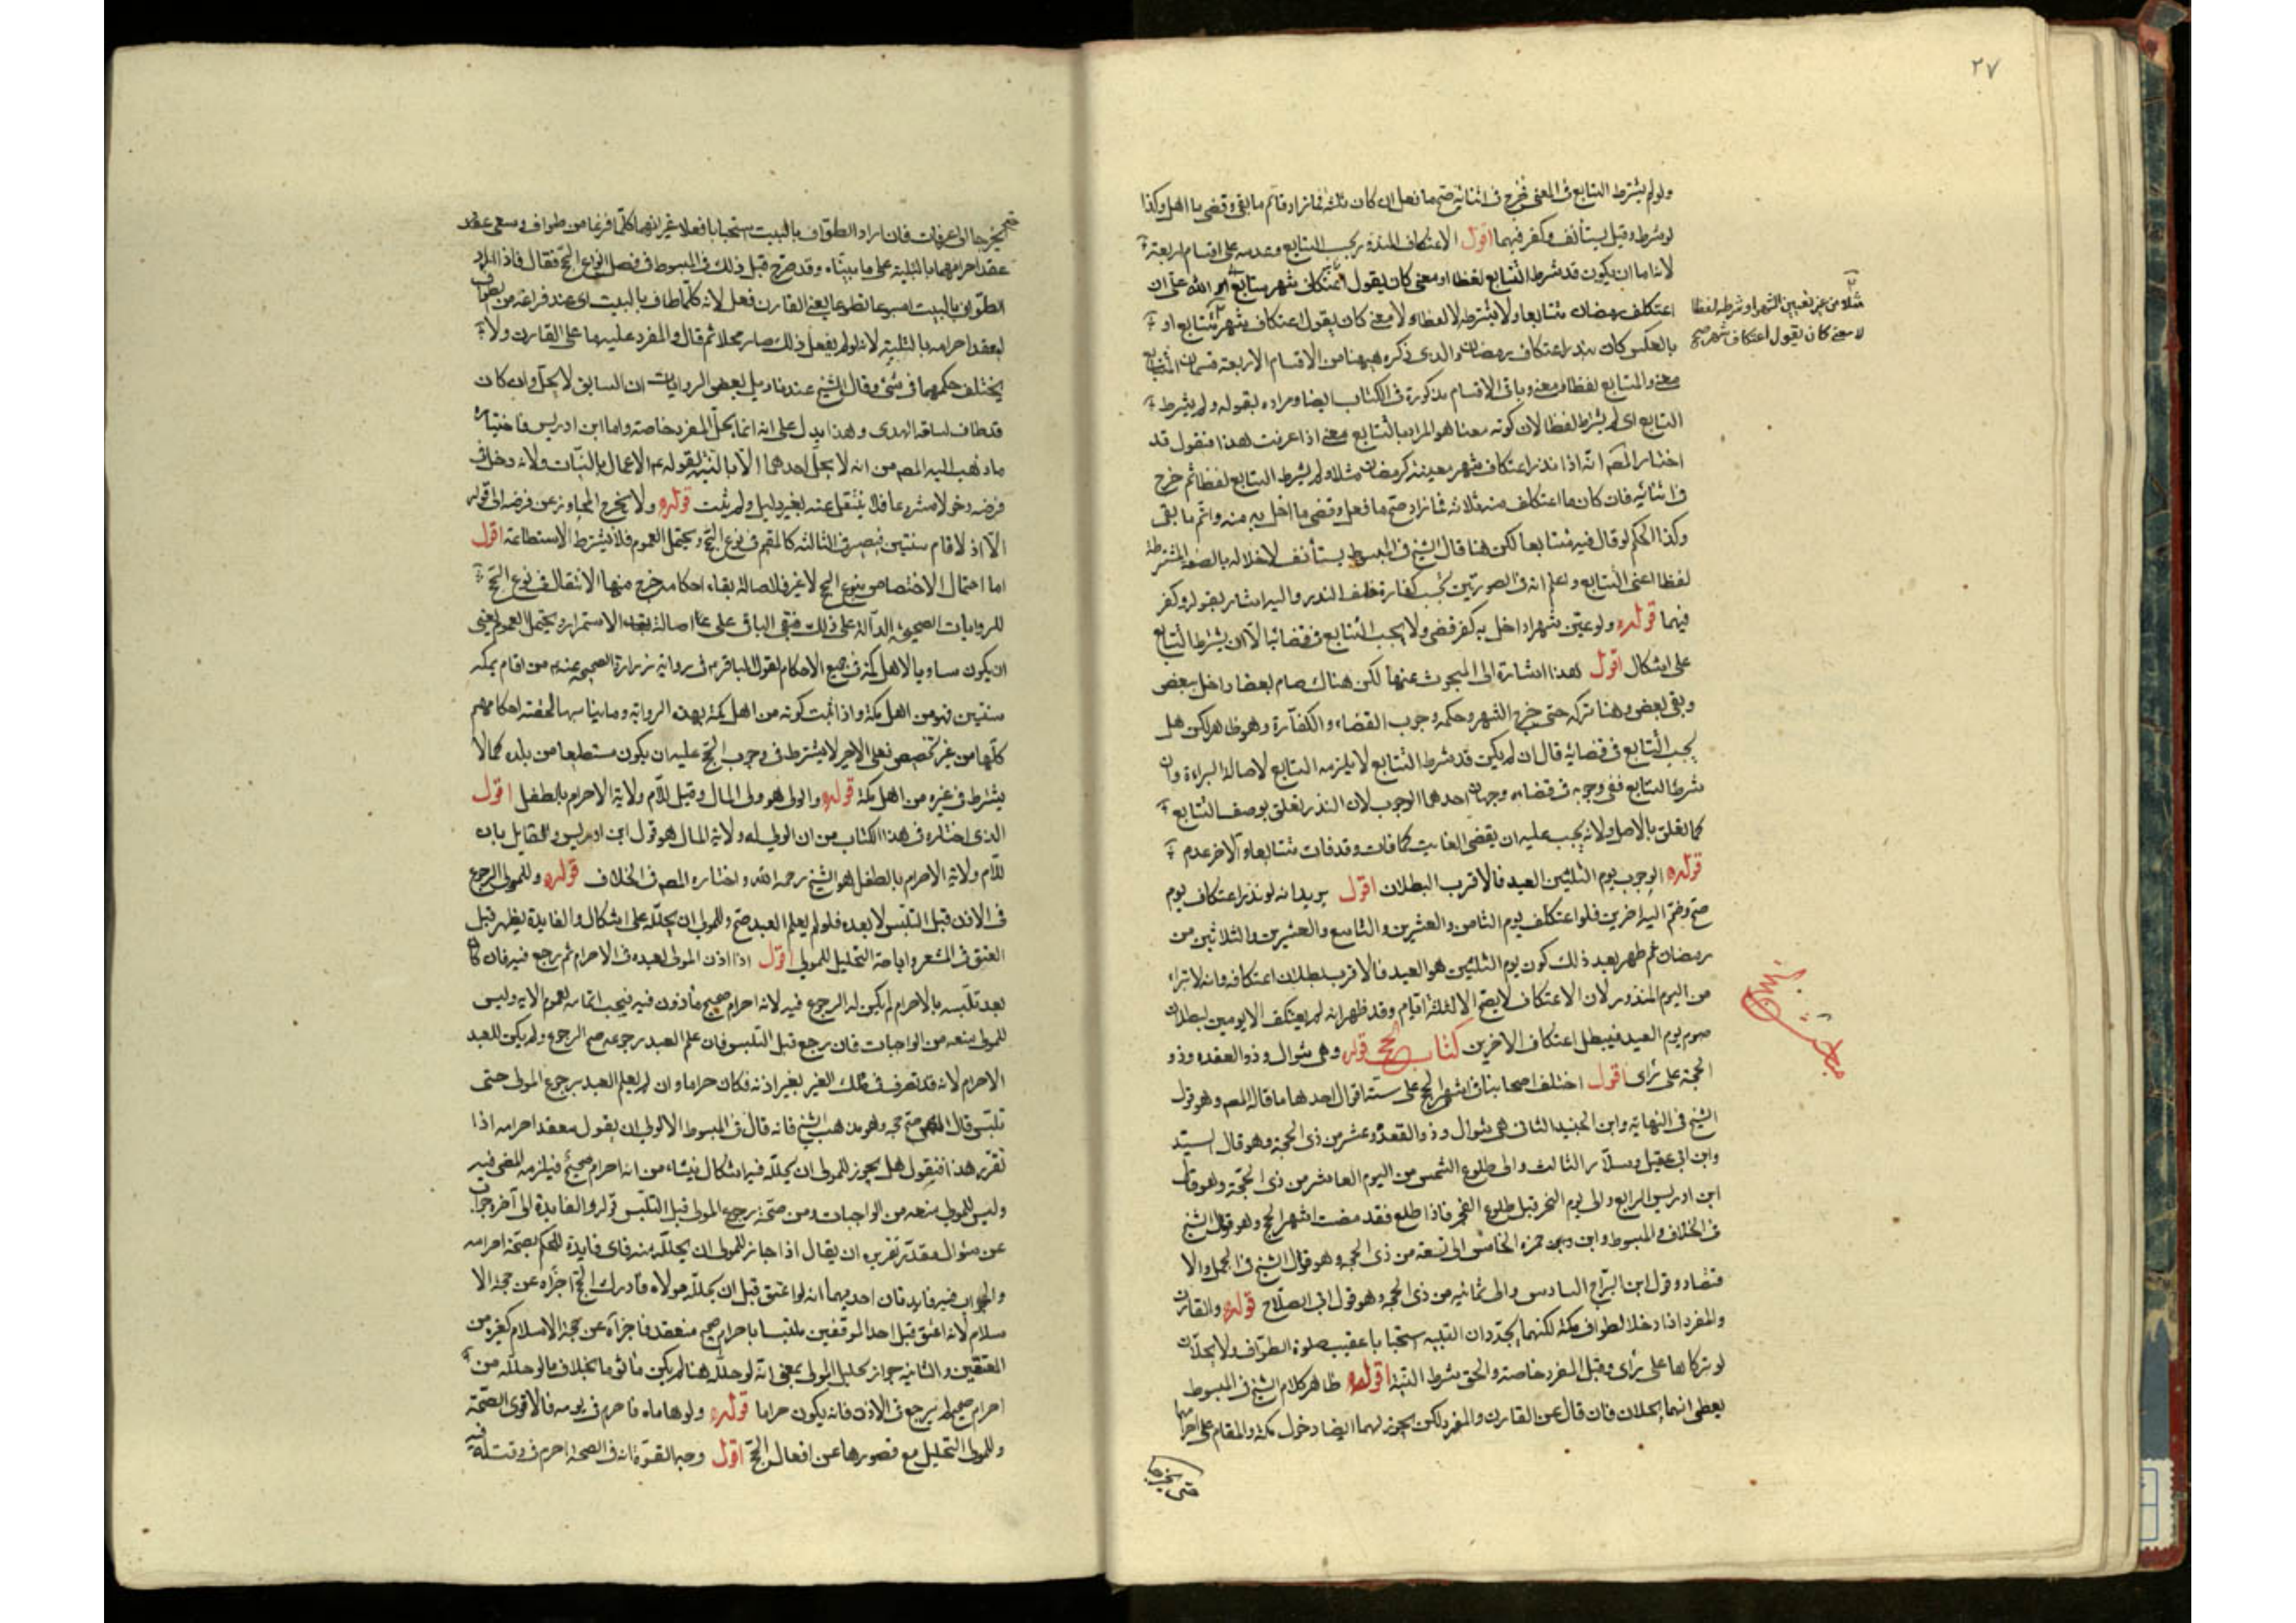 ٢٧
ولو لم يشترط التتابع في المعنى فخرج في اثنائه صح ما فعل ان كان ثلثة فما زاد واتم ما بقى وقضى ما اهل وكذا
لو شرط وقيل يستأنف وكفر فيهما اقول الاعتكاف المنذور بحسب التتابع وعدمه على اقسام اربعة
لانه اما ان يكون قد شرط التتابع لفظا او معنى كان يقول اعتكاف شهر متتابع لله على ان
اعتكف رمضان متتابعا ولا يشترطه لا لفظا ولا معنى كان يقول اعتكاف شهر متتابع او
بالعكس كان نذر اعتكاف رمضان والذي ذكره ههنا من الاقسام الاربعة قسمان المتتابع
معنى والمتتابع لفظا ومعنى وباقي الاقسام مذكورة في الكتاب ايضا ومراده بقوله ولم يشترط
التتابع اى لم يشترط لفظا لان كونه معينا هو المراد بالتتابع معنى اذا عرفت هذا فنقول قد
اختار المصـ انه اذا نذر اعتكاف شهر معين كرمضان مثلا ولم يشرط التتابع لفظا ثم خرج
في اثنائه فان كان ما اعتكف منه ثلاثة فما زاد صح ما فعل وقضى ما اخل به منه واتم ما بقى
وكذا الحكم لو قال فيه متتابعا لكن هنا قال الشيخ في المبسوط يستأنف لاخلاله بالصفة المشترطة
لفظا اعنى التتابع واعلم انه في الصورتين تجب كفارة خلف النذر واليه اشار بقوله وكفر
فيهما قوله ولو عين شهرا داخل به كفر وقضى ولا يجب التتابع في قضائه الا ان يشترط التتابع
على اشكال اقول هذا اشارة الى المبحوث عنها لكن هناك صام بعضا واخل ببعض
وبقى بعض وهنا تركه حتى خرج الشهر وحكمه وجوب القضاء والكفارة وهو ظاهر لكن هل
يجب التتابع في قضائه قال ان لم يكن قد شرط التتابع لا يلزمه التتابع لاصالة البراءة وان
شرط التتابع ففي وجوبه في قضائه وجهان احدهما الوجوب لان النذر تعلق بوصف التتابع
كما تعلق بالاصل ولانه يجب عليه ان يقضى الفائت كما فات وقد فات متتابعا والاخر عدم
الوجوب قوله يوم الثلثين العيد فالاقرب البطلان اقول يريد انه لو نذر اعتكاف يوم
صح وضم اليه اخرين فلو اعتكف يوم الثامن والعشرين والتاسع والعشرين والثلاثين من
رمضان ثم ظهر بعد ذلك كون يوم الثلثين هو العيد فالاقرب بطلان اعتكافه وانه لا تبراء
من اليوم المنذور لان الاعتكاف لا يصح الا ثلثة ايام وقد ظهر انه لم يعتكف الا يومين لبطلان
صوم يوم العيد فيبطل اعتكاف الاخرين كتاب الحج قوله وهي شوال وذو العقده وذو
الحجة على رأى اقول اختلف اصحابنا في اشهر الحج على ستة اقوال احدها ما قاله المصـ وهو قول
الشيخ في النهاية وابن الجنيد الثاني هي شوال وذو القعدة وعشر من ذي الحجة وهو قال السيد
وابن ابي عقيل وسلار الثالث والى طلوع الشمس من اليوم العاشر من ذي الحجة وهو قول
ابن ادريس الرابع والى يوم النحر قبل طلوع الفجر فاذا طلع فقد مضت اشهر الحج وهو قول الشيخ
في الخلاف والمبسوط وابن حمزه الخامس الى تسعة من ذي الحجه وهو قول الشيخ في الجمل والا
قتصاد وقول ابن البراج السادس والى ثمانيه من ذي الحجه وهو قول ابي الصلاح قوله والقارن
والمفرد اذا دخلا لطواف مكة لكنهما يجددان التلبيه استحبابا عقيب صلوة الطواف ولا يحلان
لو تركاها على رأى وقيل المفرد خاصة والحق بشرط النية اقول ظاهر كلام الشيخ في المبسوط
يعطى انهما يحلان فان قال عن القارن والمفرد لكن يجوز لهما ايضا دخول مكة والمقام على احرامهما
حتى يخرجا
مثلا من غير تعيين الشهر او شرطه لفظا
لا معنى كان يقول اعتكاف شهر صح
حتى يخرجا الى عرفات فان اراد الطواف بالبيت استحبابا فعلا غير انهما كلما فرغا من طواف وسعى عقد
عقد احرامهما بالتلبية على ما بيناه وقد صرح قبل ذلك في المبسوط في فصل انواع الحج فقال فاذا اراد
الطواف بالبيت اسبوعا تطوعا يعنى القارن فعل لانه كلما طاف بالبيت اى عند فراغه من الطواف
يعقد احرامه بالتلبية لانه لو لم يفعل ذلك صار محلا ثم قال والمفرد عليه ما على القارن ولا
يختلف حكمهما في شئ وقال الشيخ عند تاويل بعض الروايات ان السايق لا يحل وان كان
قد طاف لسياقه الهدى وهذا يدل على انه انما يحل المفرد خاصة واما ابن ادريس فاختياره
ما ذهب اليه المصـ من انه لا يحل احدهما الا بالنية لقوله ع الاعمال بالنيات ولانه دخل في
فرضه دخولا مشروعا فلا ينتقل عنه بغير دليل ولم يثبت قوله ولا يخرج المجاور عن فرضه الى قوله
الا اذ لا قام سنتين فيصير في الثالثة كالمقيم في نوع الحج ويحتمل العموم فلا يشترط الاستطاعة اقول
اما احتمال الاختصاص بنوع الحج لا غير فلاصالة بقاء احكامه خرج منها الانتقال في نوع الحج
للروايات الصحيحة الدالة على ذلك فبقى الباقي على اصالة الاستمرار ويحتمل العموم يعنى
ان يكون مساويا لاهل مكة في جميع الاحكام لقول الباقر ع في رواية زرارة الصحيحة عنه من اقام بمكة
سنتين فهو من اهل مكة واذا ثبت كونه من اهل مكة بهذه الرواية وما يناسبها لحقته احكامهم
كلها من غير تخصيص فعلى الاخير لا يشترط في وجوب الحج عليه ان يكون مستطيعا من بلده كما لا
يشترط في غيره من اهل مكة قوله والولى هو ولى المال وقيل للام ولاية الاحرام بالطفل اقول
الذى اختاره في هذا الكتاب من ان الولى له ولاية المال هو قول ابن ادريس والقايل بان
للام ولاية الاحرام بالطفل هو الشيخ رحمه الله واختاره المصـ في الخلاف قوله وللمولى الرجوع
في الاذن قبل التلبس لا بعده فلو لم يعلم العبد صح وللمولى ان يحلله على اشكال والفايدة يظهر قبل
العتق في المشعر واباحة التحليل للمولى اقول اذا اذن المولى لعبده في الاحرام ثم رجع فيه فان كان
بعد تلبسه بالاحرام لم يكن له الرجوع فيه لانه احرام صحيح ماذون فيه فيجب اتمامه لعموم الاية وليس
للمولى منعه من الواجبات فان رجع قبل التلبس فان علم العبد رجوعه صح الرجوع ولم يكن للعبد
الاحرام لانه قد تصرف في ملك الغير بغير اذنه فكان حراما وان لم يعلم العبد برجوع المولى حتى
تلبس قال المصـ صح حجه وهو مذهب الشيخ فانه قال في المبسوط الاولى ان يقول معقد احرامه اذا
تقرر هذا فنقول هل يجوز للمولى ان يحلله فيه اشكال ينشاء من انه احرام صحيح فيلزمه المضى فيه
وليس للمولى منعه من الواجبات ومن صحة رجوع المولى قبل التلبس قوله والفايدة الى آخره جواب
عن سؤال مقدر تقريره ان يقال اذا جاز للمولى ان يحلله منه فاى فايدة للحكم بصحة احرامه
والجواب فيه فايدتان احديهما انه لو اعتق قبل ان يحلله مولاه فادرك الحج اجزاه عن حجة الا
سلام لانه اعتق قبل احد الموقفين متلبسا باحرام صحيح منعقد فاجزاه عن حجة الاسلام كغيره من
المعتقين والثانيه جواز تحليل المولى بمعنى انه لو حلله هنا لم يكن ماثوما بخلاف ما لو حلله من
احرام صحيح لم يرجع في الاذن فانه يكون حراما قوله ولو هاياه فاحرم في يومه فالاقوى الصحة
وللمولى التحليل مع قصورها عن افعال الحج اقول وجه القوة انه في الصحة احرم في وقت له فيه